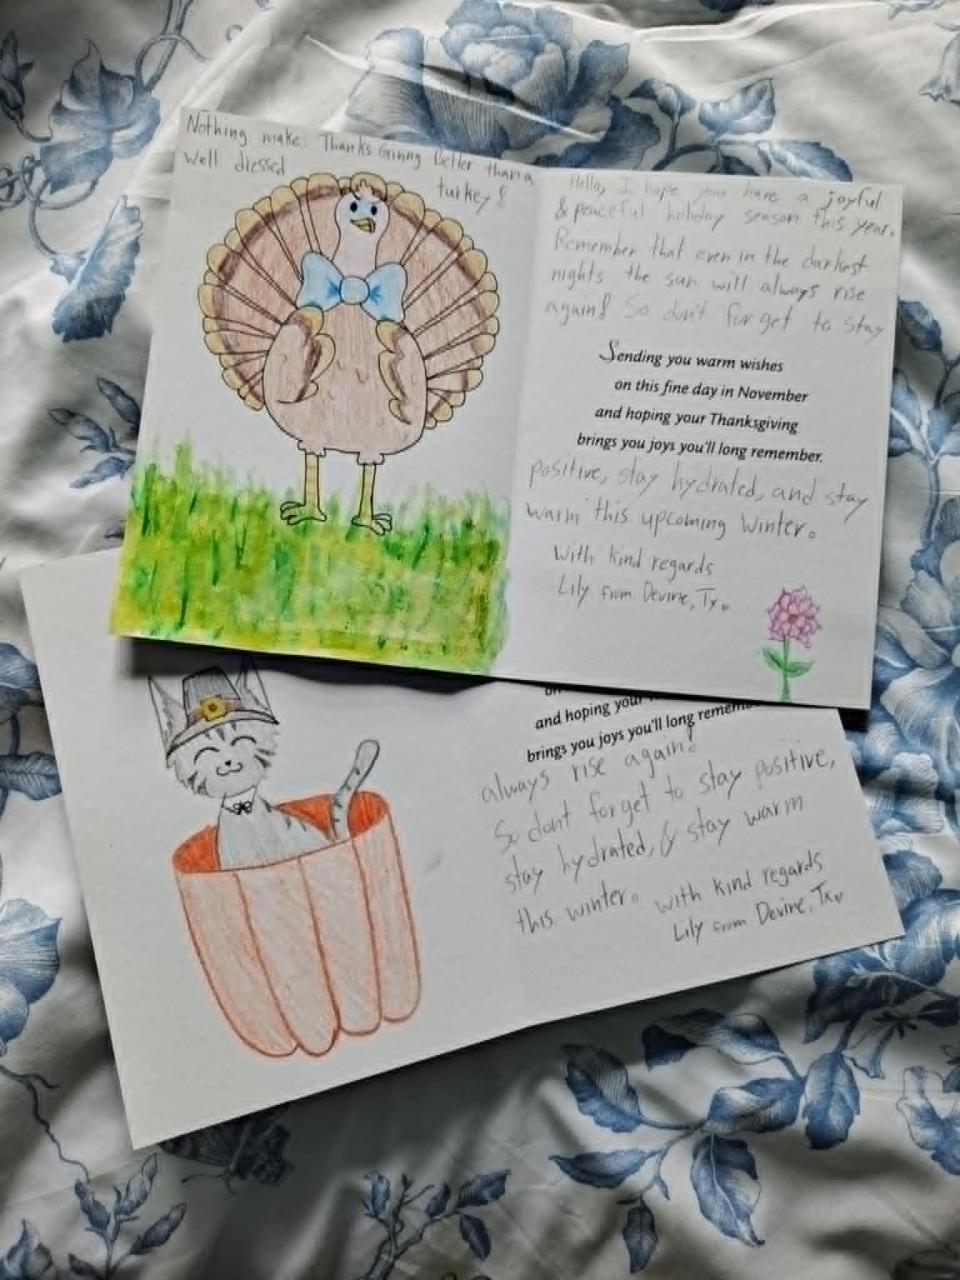 Nothing makes Thanks Giving better than a
well dressed
turkey!
Hello, I hope you have a joyful
& peaceful holiday season this year.
Remember that even in the darkest
nights the sun will always rise
again! So don't forget to stay
Sending you warm wishes
on this fine day in November
and hoping your Thanksgiving
brings you joys you'll long remember.
positive, stay hydrated, and stay
warm this upcoming winter.
With kind regards
Lily from Devine, Tx.
on
and hoping your
brings you joys you'll long remem
always rise again!
So dont forget to stay positive,
stay hydrated, & stay warm
this winter. with kind regards
Lily from Devine, Tx.